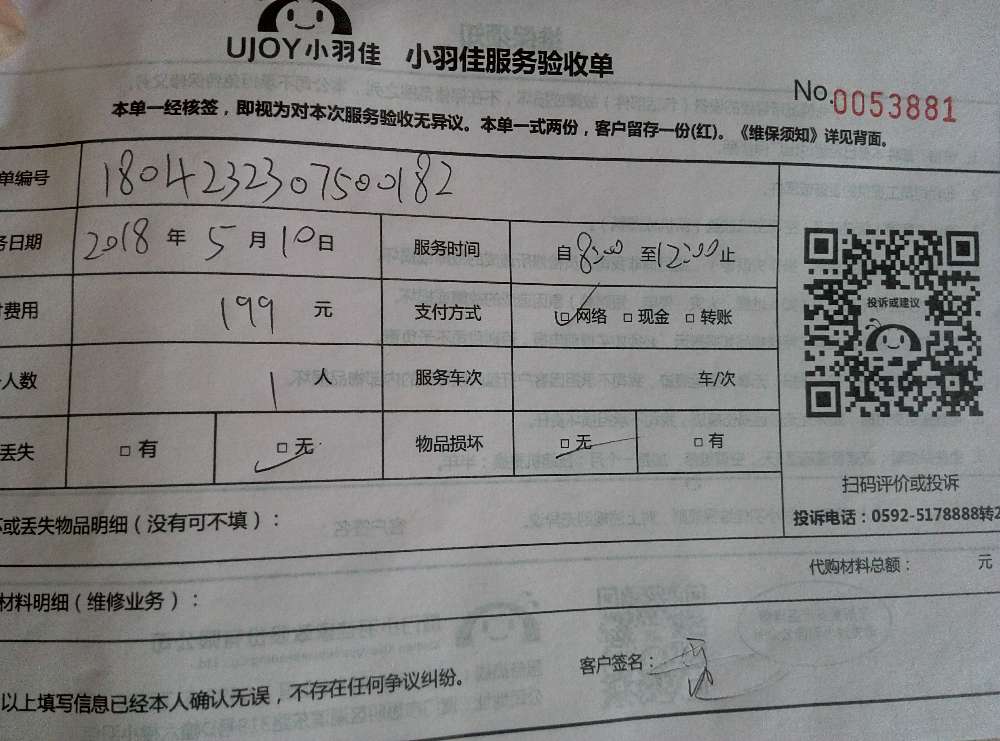 UJOY小羽佳 小羽佳服务验收单
No.0053881
本单一经核签，即视为对本次服务验收无异议。本单一式两份，客户留存一份(红)。《维保须知》详见背面。
单编号 1804232307500182
务日期 2018 年 5 月 10 日 服务时间 自 8:00 至 12:00 止
费用 199 元 支付方式 □网络 □现金 □转账
人数 1 人 服务车次 车/次
丢失 □有 □无 物品损坏 □无 □有
投诉或建议
扫码评价或投诉
投诉电话：0592-5178888转2
坏或丢失物品明细（没有可不填）：
代购材料总额： 元
材料明细（维修业务）：
客户签名：
以上填写信息已经本人确认无误，不存在任何争议纠纷。